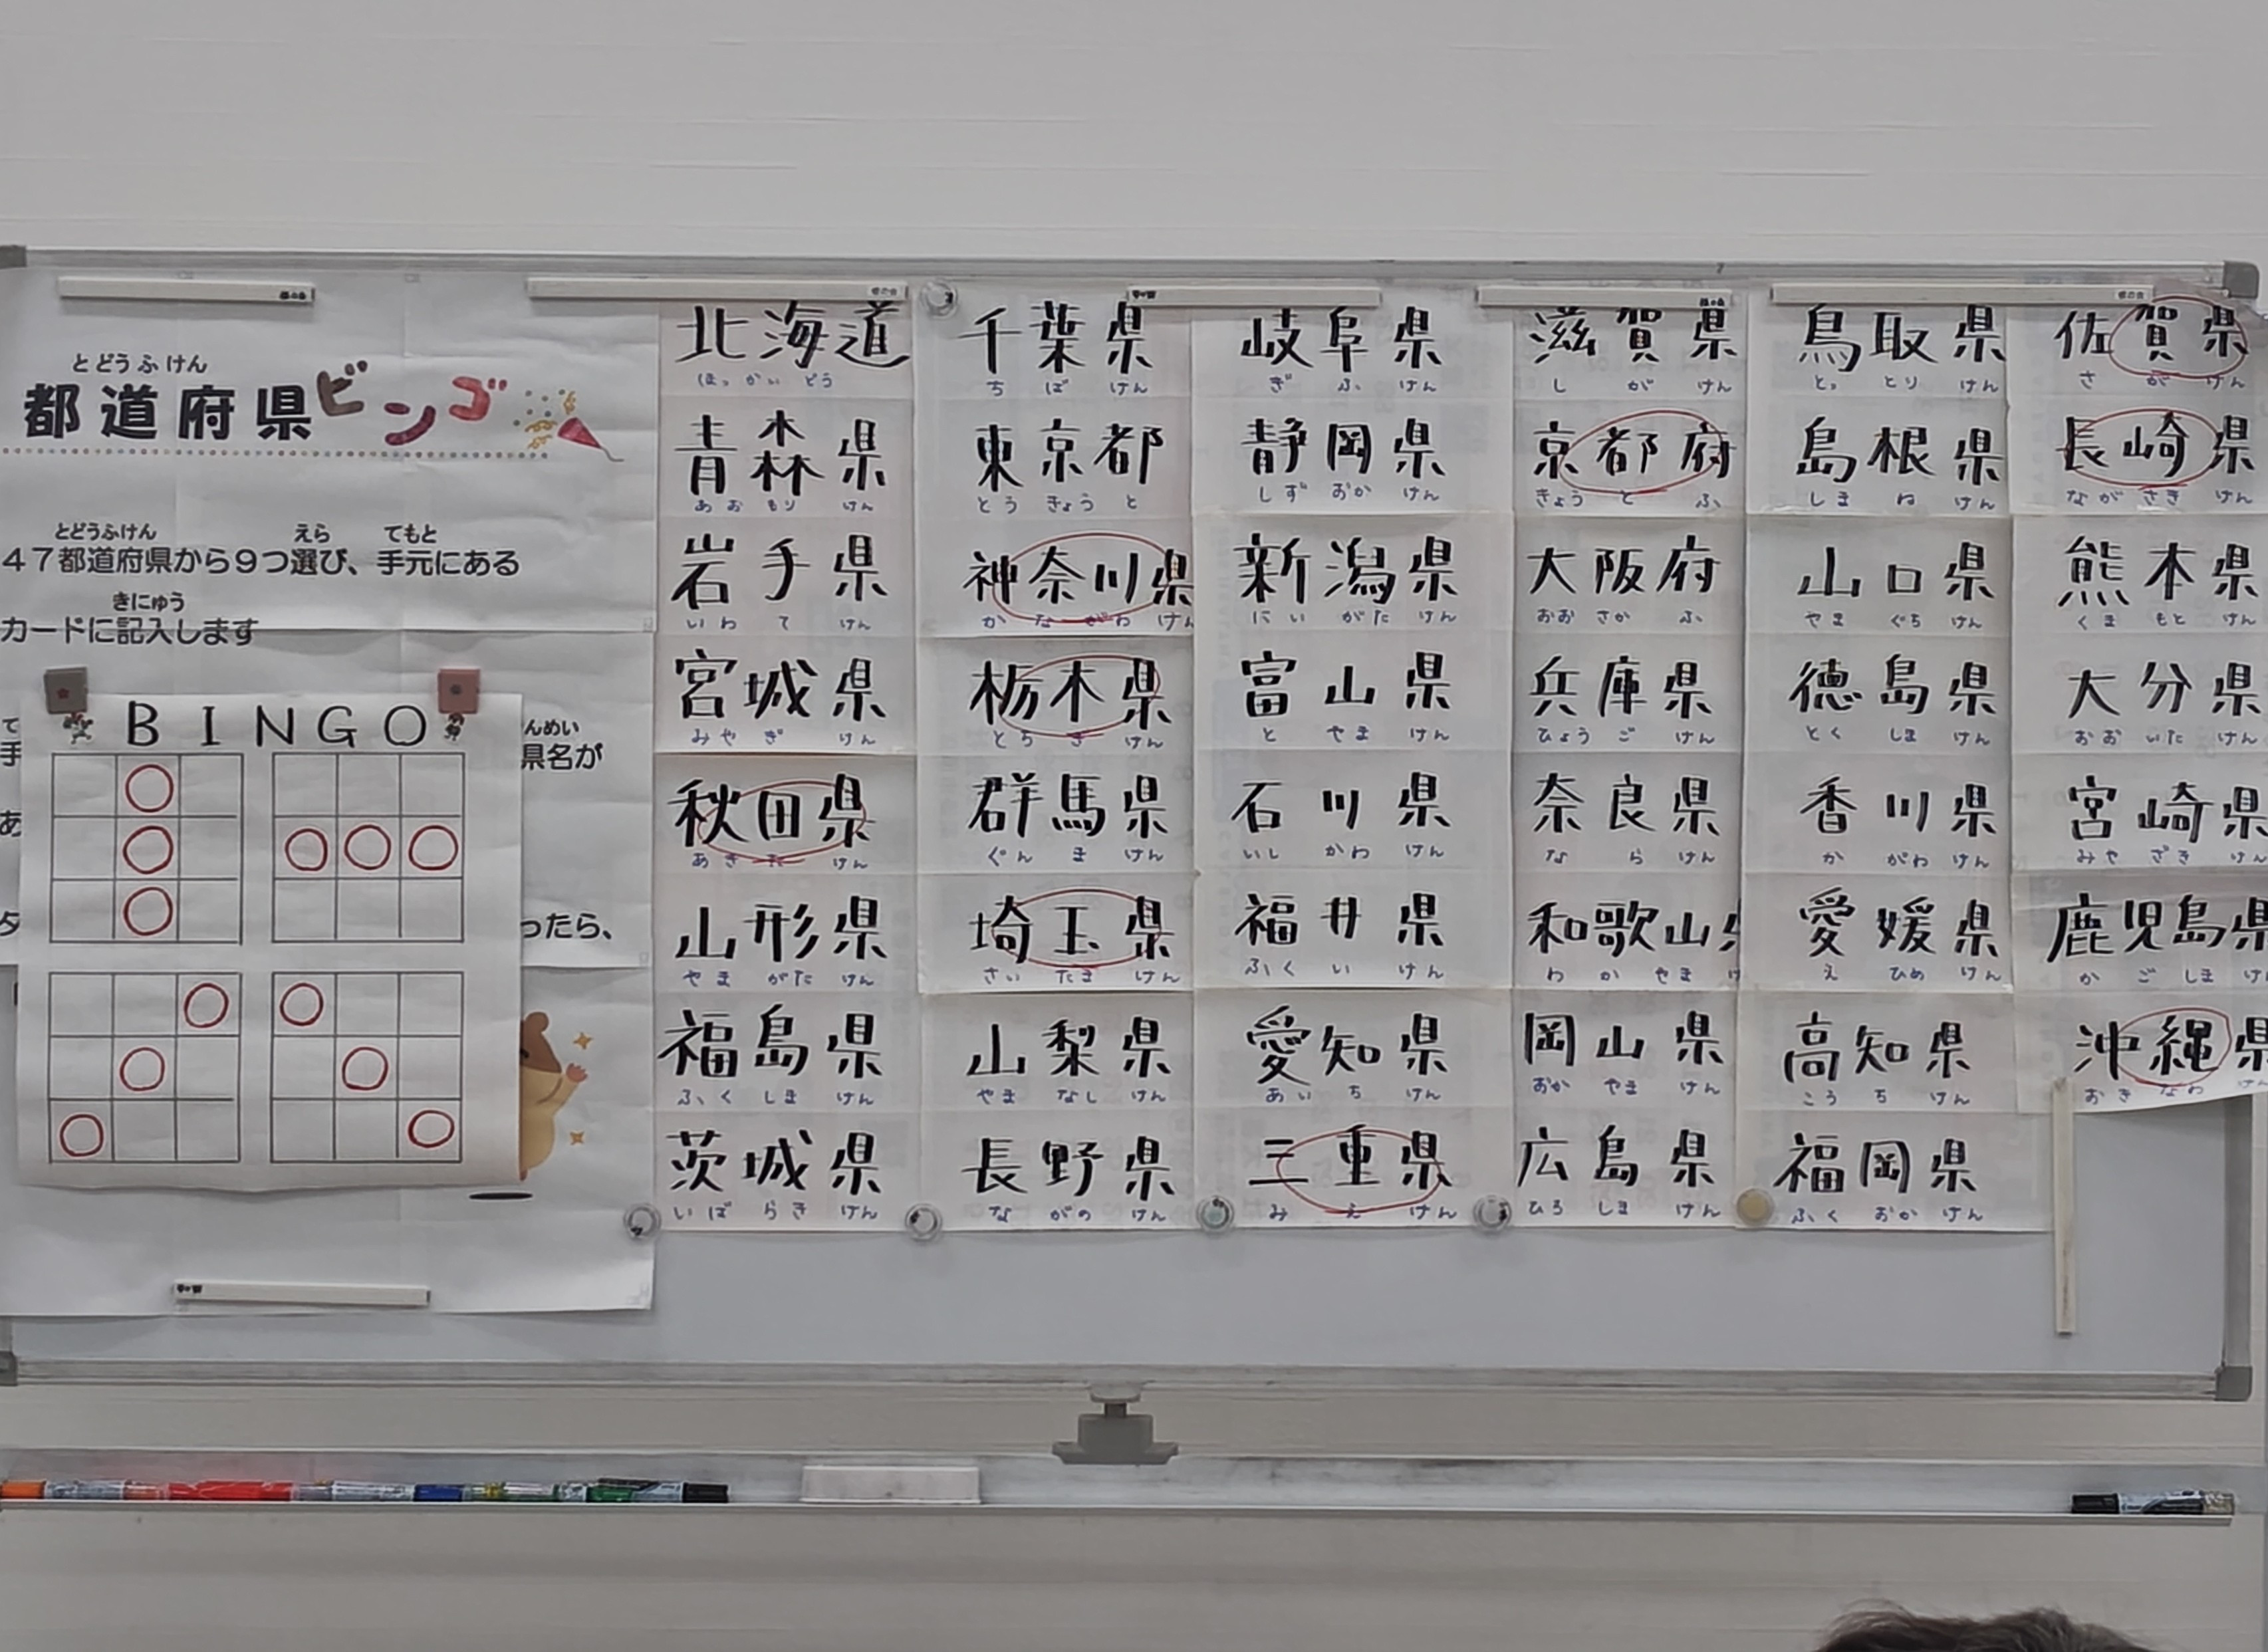 とどうふけん
都道府県ビンゴ
とどうふけん えら てもと
47都道府県から9つ選び、手元にある
きにゅう
カードに記入します
て
手
んめい
県名が
あ
ったら、
BINGO
北海道
ほっかいどう
青森県
あおもりけん
岩手県
いわてけん
宮城県
みやぎけん
秋田県
あきたけん
山形県
やまがたけん
福島県
ふくしまけん
茨城県
いばらきけん
千葉県
ちばけん
東京都
とうきょうと
神奈川県
かながわけん
栃木県
とちぎけん
群馬県
ぐんまけん
埼玉県
さいたまけん
山梨県
やまなしけん
長野県
ながのけん
岐阜県
ぎふけん
静岡県
しずおかけん
新潟県
にいがたけん
富山県
とやまけん
石川県
いしかわけん
福井県
ふくいけん
愛知県
あいちけん
三重県
みえけん
滋賀県
しがけん
京都府
きょうとふ
大阪府
おおさかふ
兵庫県
ひょうごけん
奈良県
ならけん
和歌山
わかやまけ
岡山県
おかやまけん
広島県
ひろしまけん
鳥取県
とっとりけん
島根県
しまねけん
山口県
やまぐちけん
徳島県
とくしまけん
香川県
かがわけん
愛媛県
えひめけん
高知県
こうちけん
福岡県
ふくおかけん
佐賀県
さがけん
長崎県
ながさきけん
熊本県
くまもとけん
大分県
おおいたけん
宮崎県
みやざきけん
鹿児島県
かごしまけん
沖縄県
おきなわけん